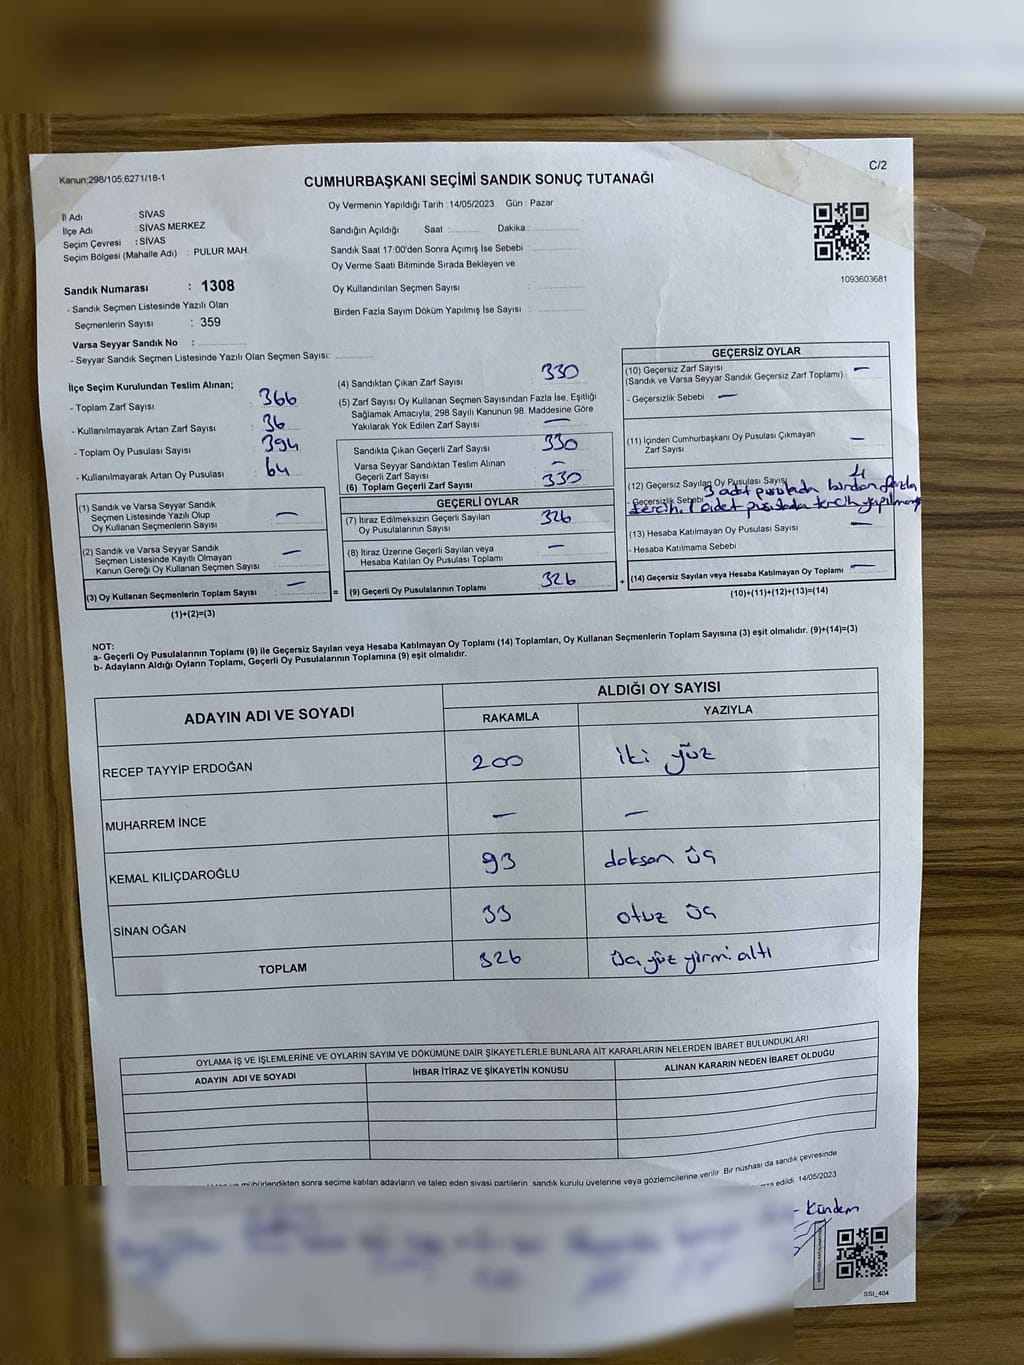 Kanun;298/105,6271/18-1
C/2
CUMHURBAŞKANI SEÇİMİ SANDIK SONUÇ TUTANAĞI
Oy Vermenin Yapıldığı Tarih :14/05/2023 Gün : Pazar
İl Adı : SİVAS
İlçe Adı : SİVAS MERKEZ
Seçim Çevresi : SİVAS
Seçim Bölgesi (Mahalle Adı) : PULUR MAH.
Sandığın Açıldığı Saat : Dakika :
Sandık Saat 17:00'den Sonra Açımış İse Sebebi :
Oy Verme Saati Bitiminde Sırada Bekleyen ve
Oy Kullandırılan Seçmen Sayısı :
Birden Fazla Sayım Döküm Yapılmış İse Sayısı :
1093603681
Sandık Numarası : 1308
- Sandık Seçmen Listesinde Yazılı Olan
Seçmenlerin Sayısı : 359
Varsa Seyyar Sandık No :
- Seyyar Sandık Seçmen Listesinde Yazılı Olan Seçmen Sayısı:
İlçe Seçim Kurulundan Teslim Alınan;
- Toplam Zarf Sayısı : 366
- Kullanılmayarak Artan Zarf Sayısı : 36
- Toplam Oy Pusulası Sayısı : 394
- Kullanılmayarak Artan Oy Pusulası : 64
(1) Sandık ve Varsa Seyyar Sandık
Seçmen Listesinde Yazılı Olup
Oy Kullanan Seçmenlerin Sayısı : —
(2) Sandık ve Varsa Seyyar Sandık
Seçmen Listesinde Kayıtlı Olmayan
Kanun Gereği Oy Kullanan Seçmen Sayısı : —
(3) Oy Kullanan Seçmenlerin Toplam Sayısı : —
(1)+(2)=(3)
(4) Sandıktan Çıkan Zarf Sayısı 330
(5) Zarf Sayısı Oy Kullanan Seçmen Sayısından Fazla İse, Eşitliği
Sağlamak Amacıyla, 298 Sayılı Kanunun 98. Maddesine Göre
Yakılarak Yok Edilen Zarf Sayısı —
Sandıkta Çıkan Geçerli Zarf Sayısı 330
Varsa Seyyar Sandıktan Teslim Alınan
Geçerli Zarf Sayısı —
(6) Toplam Geçerli Zarf Sayısı 330
GEÇERLİ OYLAR
(7) İtiraz Edilmeksizin Geçerli Sayılan
Oy Pusulalarının Sayısı 326
(8) İtiraz Üzerine Geçerli Sayılan veya
Hesaba Katılan Oy Pusulası Toplamı —
= (9) Geçerli Oy Pusulalarının Toplamı 326 +
GEÇERSİZ OYLAR
(10) Geçersiz Zarf Sayısı
(Sandık ve Varsa Seyyar Sandık Geçersiz Zarf Toplamı) —
- Geçersizlik Sebebi : —
(11) İçinden Cumhurbaşkanı Oy Pusulası Çıkmayan
Zarf Sayısı —
(12) Geçersiz Sayılan Oy Pusulası Sayısı 4
- Geçersizlik Sebebi 3 adet pusulada birden fazla
tercih, 1 adet pusulada tercih
(13) Hesaba Katılmayan Oy Pusulası Sayısı —
- Hesaba Katılmama Sebebi :
(14) Geçersiz Sayılan veya Hesaba Katılmayan Oy Toplamı —
(10)+(11)+(12)+(13)=(14)
NOT:
a- Geçerli Oy Pusulalarının Toplamı (9) ile Geçersiz Sayılan veya Hesaba Katılmayan Oy Toplamı (14) Toplamları, Oy Kullanan Seçmenlerin Toplam Sayısına (3) eşit olmalıdır. (9)+(14)=(3)
b- Adayların Aldığı Oyların Toplamı, Geçerli Oy Pusulalarının Toplamına (9) eşit olmalıdır.
ADAYIN ADI VE SOYADI
ALDIĞI OY SAYISI
RAKAMLA YAZIYLA
RECEP TAYYİP ERDOĞAN 200 iki yüz
MUHARREM İNCE — —
KEMAL KILIÇDAROĞLU 93 doksan üç
SİNAN OĞAN 33 otuz üç
TOPLAM 326 üç yüz yirmi altı
OYLAMA İŞ VE İŞLEMLERİNE VE OYLARIN SAYIM VE DÖKÜMÜNE DAİR ŞİKAYETLERLE BUNLARA AİT KARARLARIN NELERDEN İBARET BULUNDUKLARI
ADAYIN ADI VE SOYADI İHBAR İTİRAZ VE ŞİKAYETİN KONUSU ALINAN KARARIN NEDEN İBARET OLDUĞU
mühürlendikten sonra seçime katılan adayların ve talep eden siyasi partilerin sandık kurulu üyelerine veya gözlemcilerine verilir. Bir nüshası da sandık çevresinde
edildi. 14/05/2023
SSI_404